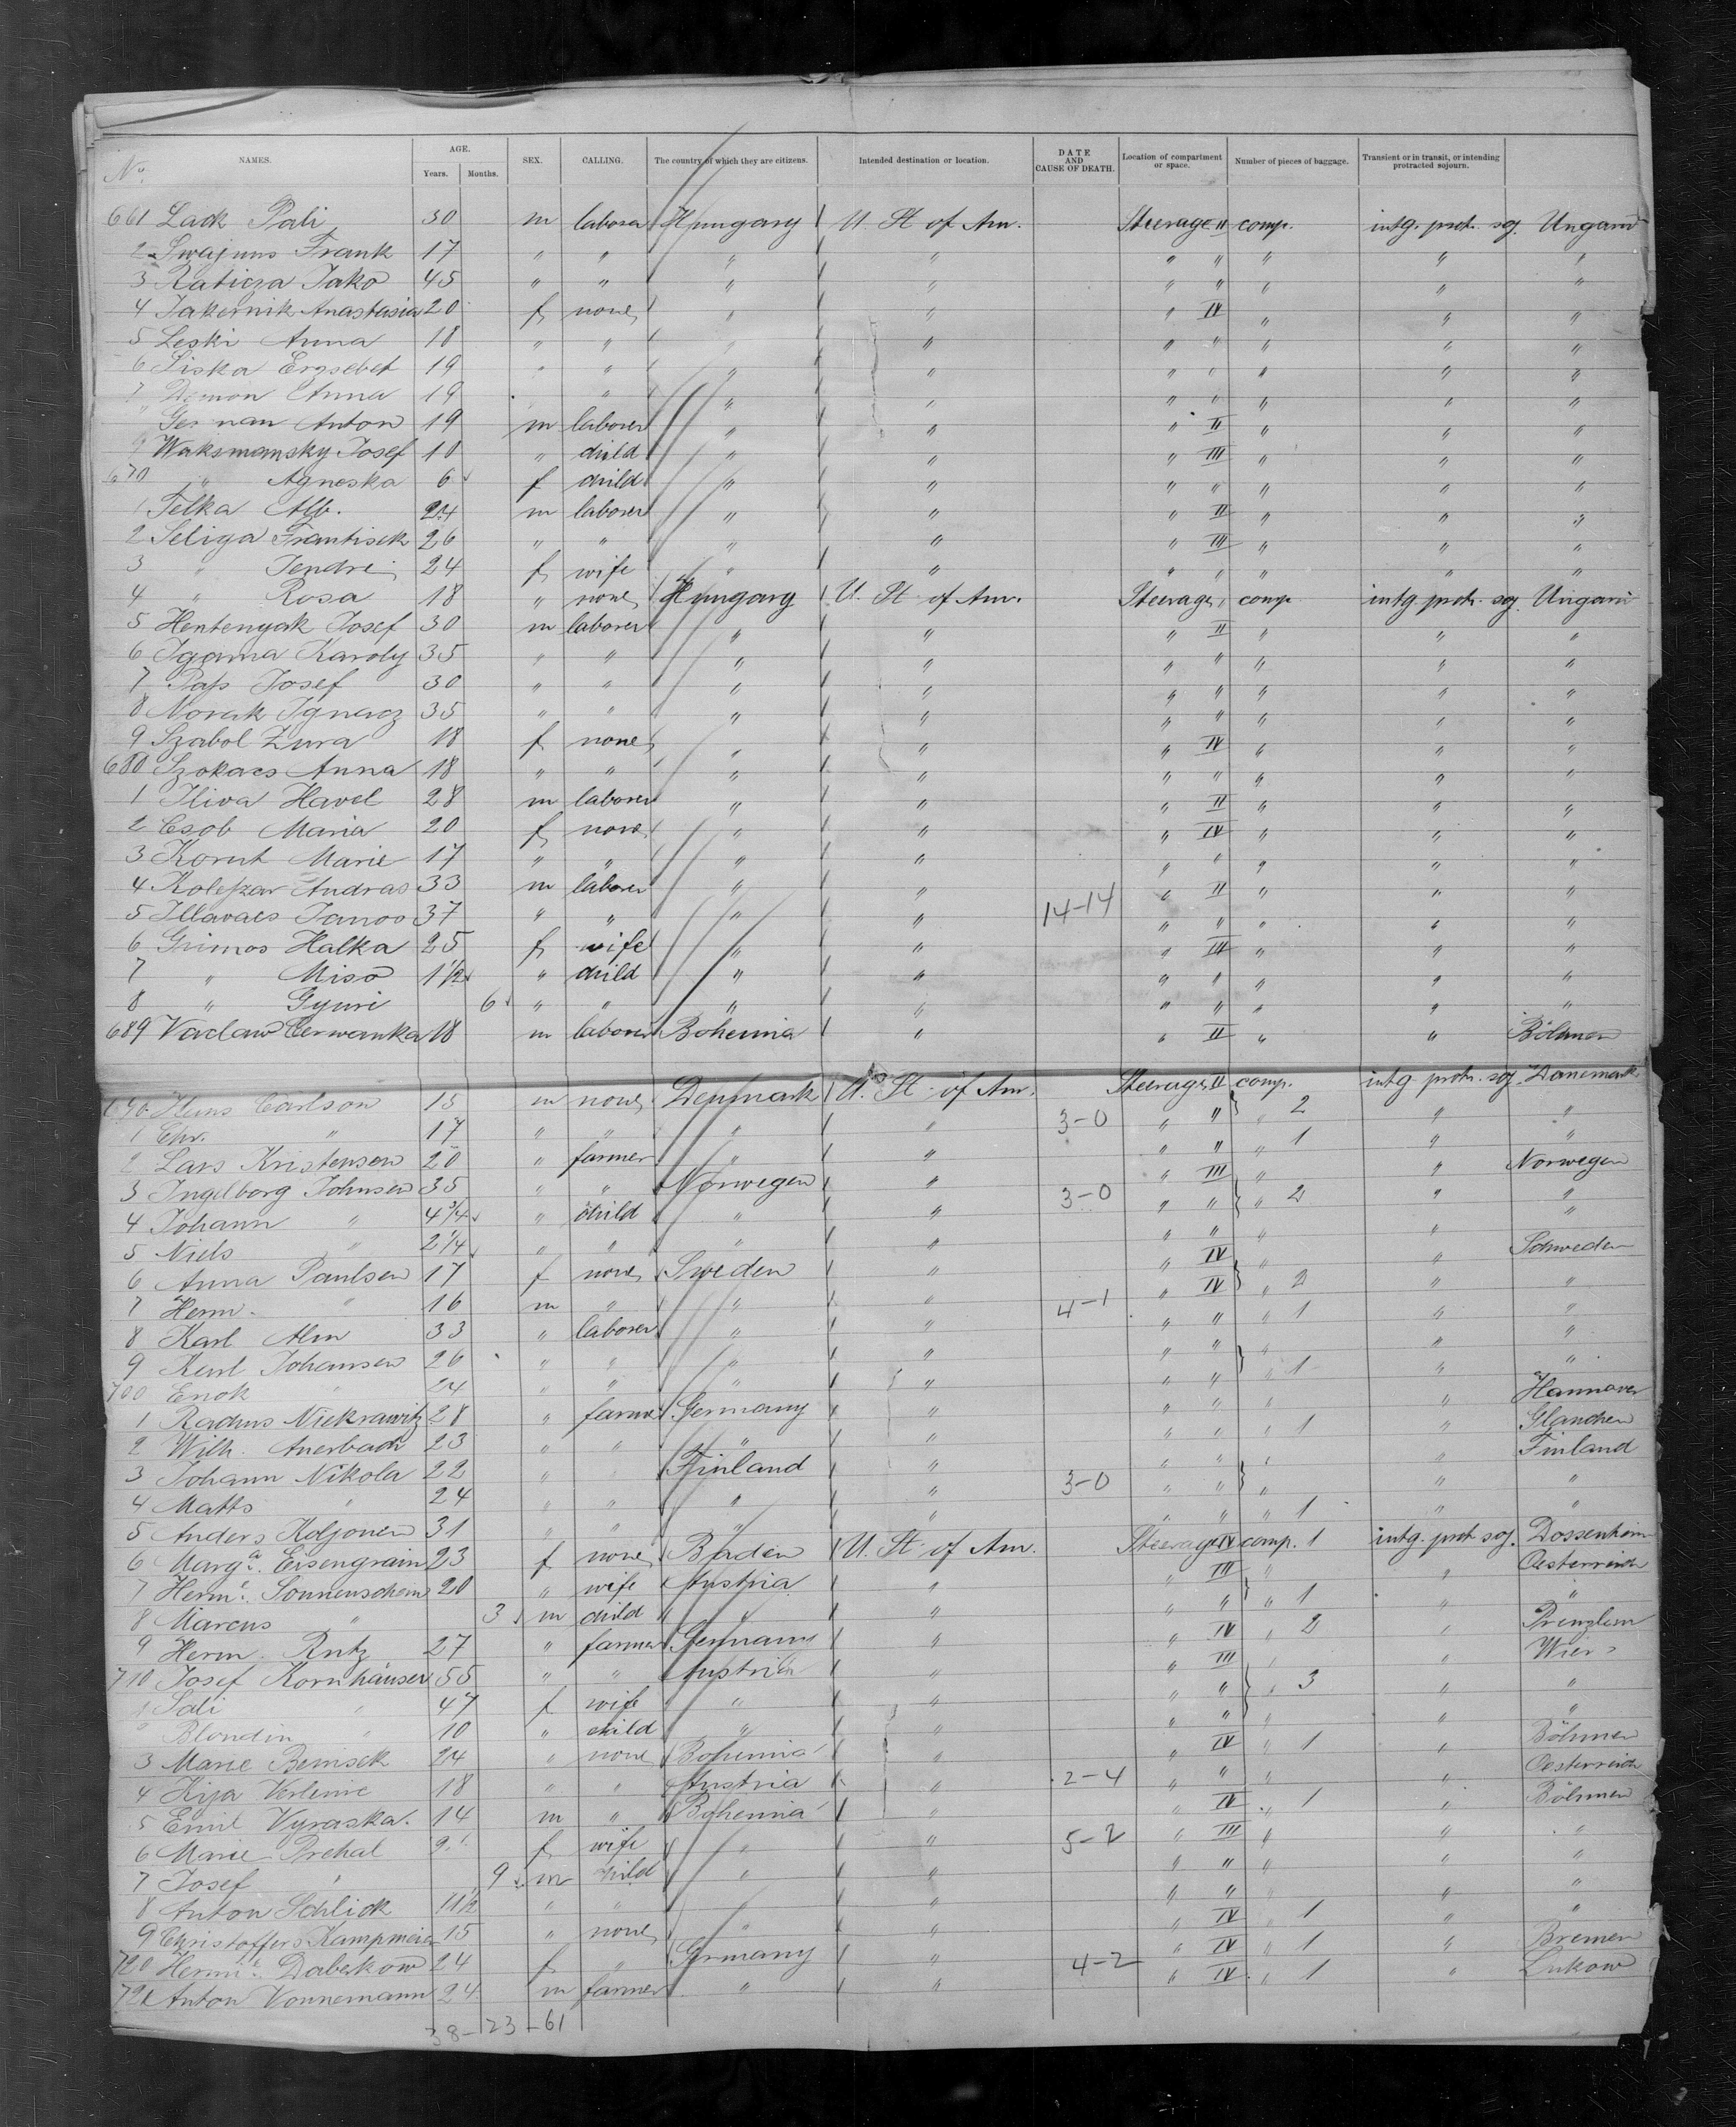 No. NAMES. AGE. Years. Months. SEX. CALLING. The country of which they are citizens. Intended destination or location. DATE AND CAUSE OF DEATH. Location of compartment or space. Number of pieces of baggage. Transient or in transit, or intending protracted sojourn.
661 Lack Pali 30 m labora Hungary U. St of Am. Steerage II comp. intg. prot. soj. Ungarn
2 Swajuns Frank 17 " " " " " " " " "
3 Raticza Jako 45 " " " " " " " " "
4 Jakernik Anastasia 20 f none " " " IV " " "
5 Leski Anna 18 " " " " " " " " "
6 Siska Erzsebet 19 " " " " " " " " "
7 Anna 19 " " " " " " " "
German Anton 19 m laborer " " " II " " "
9 Waksmansky Josef 10 " child " " " III " " "
670 " Agneska 6 f child " " " " " " "
1 Telka Alb. 24 m laborer " " " II " " "
2 Seliga Frantisek 26 " " " " " III " " "
3 " Jendrej 24 f wife " " " " " " "
4 " Rosa 18 " none Hungary U. St of Am. Steerage " comp intg. prot. soj. Ungarn
5 Hentenyak Josef 30 m laborer " " " II " " "
6 Karoly 35 " " " " " " " " "
7 Pap Josef 30 " " " " " " " " "
8 Novak Ignacz 35 " " " " " " " " "
9 Szabol Zura 18 f none " " " IV " " "
680 Szokacs Anna 18 " " " " " " " " "
1 Iliva Havel 28 m laborer " " " II " " "
2 Csob Maria 20 f none " " " IV " " "
3 Korut Marie 17 " " " " " " " " "
4 Koleszar Andras 33 m laborer " " " II " " "
5 Janos 37 " " " " 14-14 " " " " "
6 Grimos Halka 25 f wife " " " III " " "
7 " Miso 1 1/2 " child " " " " " " "
8 " Gyuri 6 " " " " " " " " "
689 Vaclaw Cerwanka 18 m laborer Bohemia " " II " " Böhmen
690 Hans Carlson 15 m none Denmark U. St. of Am. Steerage II comp. intg. prot. soj. Danemark
1 Chr. " 17 " " " " 3-0 " " " 2 " "
2 Lars Kristensen 20 " farmer " " " " " 1 " "
3 Ingelborg Johnsen 35 " " Norwegen " " III " " Norwegen
4 Johann " 4 3/4 " child " " 3-0 " " " 2 " "
5 Niels " 2 1/4 " " " " " " " "
6 Anna Paulsen 17 f none Sweden " " IV " " Schweden
7 Herm. " 16 m " " " 4-1 " IV " 2 " "
8 Karl Alm 33 " laborer " " " " " 1 " "
9 Karl Johansen 26 " " " " " " " " "
700 Enok " 24 " " " " " " " 1 " "
1 Radms Niekrawitz 28 " farmer Germany " " " " " Hannover
2 Wilh. Auerbach 23 " " " " " " " 1 " Glanchen
3 Johann Nikola 22 " Finland " " " " " Finland
4 Matts " 24 " " " " 3-0 " " " " "
5 Anders Koljonen 31 " " " " " " " 1 " "
6 Margte. Eisengrain 23 f none Baden U. St. of Am. Steerage IV comp. 1 intg. prot. soj. Dossenheim
7 Hermc. Sonnenschein 20 " wife Austria " " III " " Oesterreich
8 Marcus " 3 m child " " " " " 1 " "
9 Herm. Rutz 27 " farmer Germany " " IV " 2 " Prenzlau
710 Josef Kornhäuser 55 " " Austria " " III " " Wien
1 Sali " 47 f wife " " " " " 3 " "
Blondin " 10 " child " " " " " " "
3 Marie Benisek 24 " none Bohemia " " IV " 1 " Böhmen
4 Kija Verlenie 18 " " Austria " 2-4 " " " " Oesterreich
5 Emil Vyraska. 14 m " Bohemia " " IV " 1 " Böhmen
6 Marie Prehal f wife " " 5-2 " III " " "
7 Josef " 9 m child " " " " " " "
8 Anton Schlick 11 1/2 " " " " " " " "
9 Christoffers Kampmeier 15 " none " " " IV " 1 " "
720 Hermc. Daberkow 24 f " Germany " 4-2 " IV " 1 " Bremen
721 Anton Vonnemann 24 m farmer " " " IV " 1 " Lukow
38-23-61